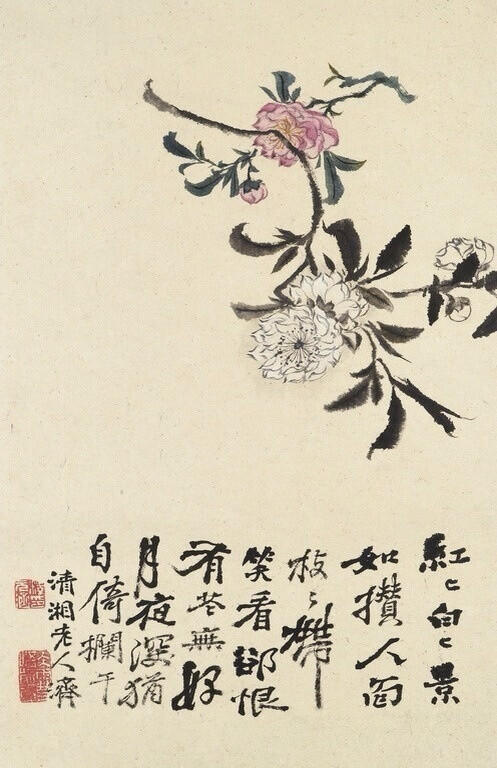 紅〻白〻最
如攢人面
枝〻帶
笑看卻恨
有花無好
月夜深猶
自倚欄干
清湘老人濟